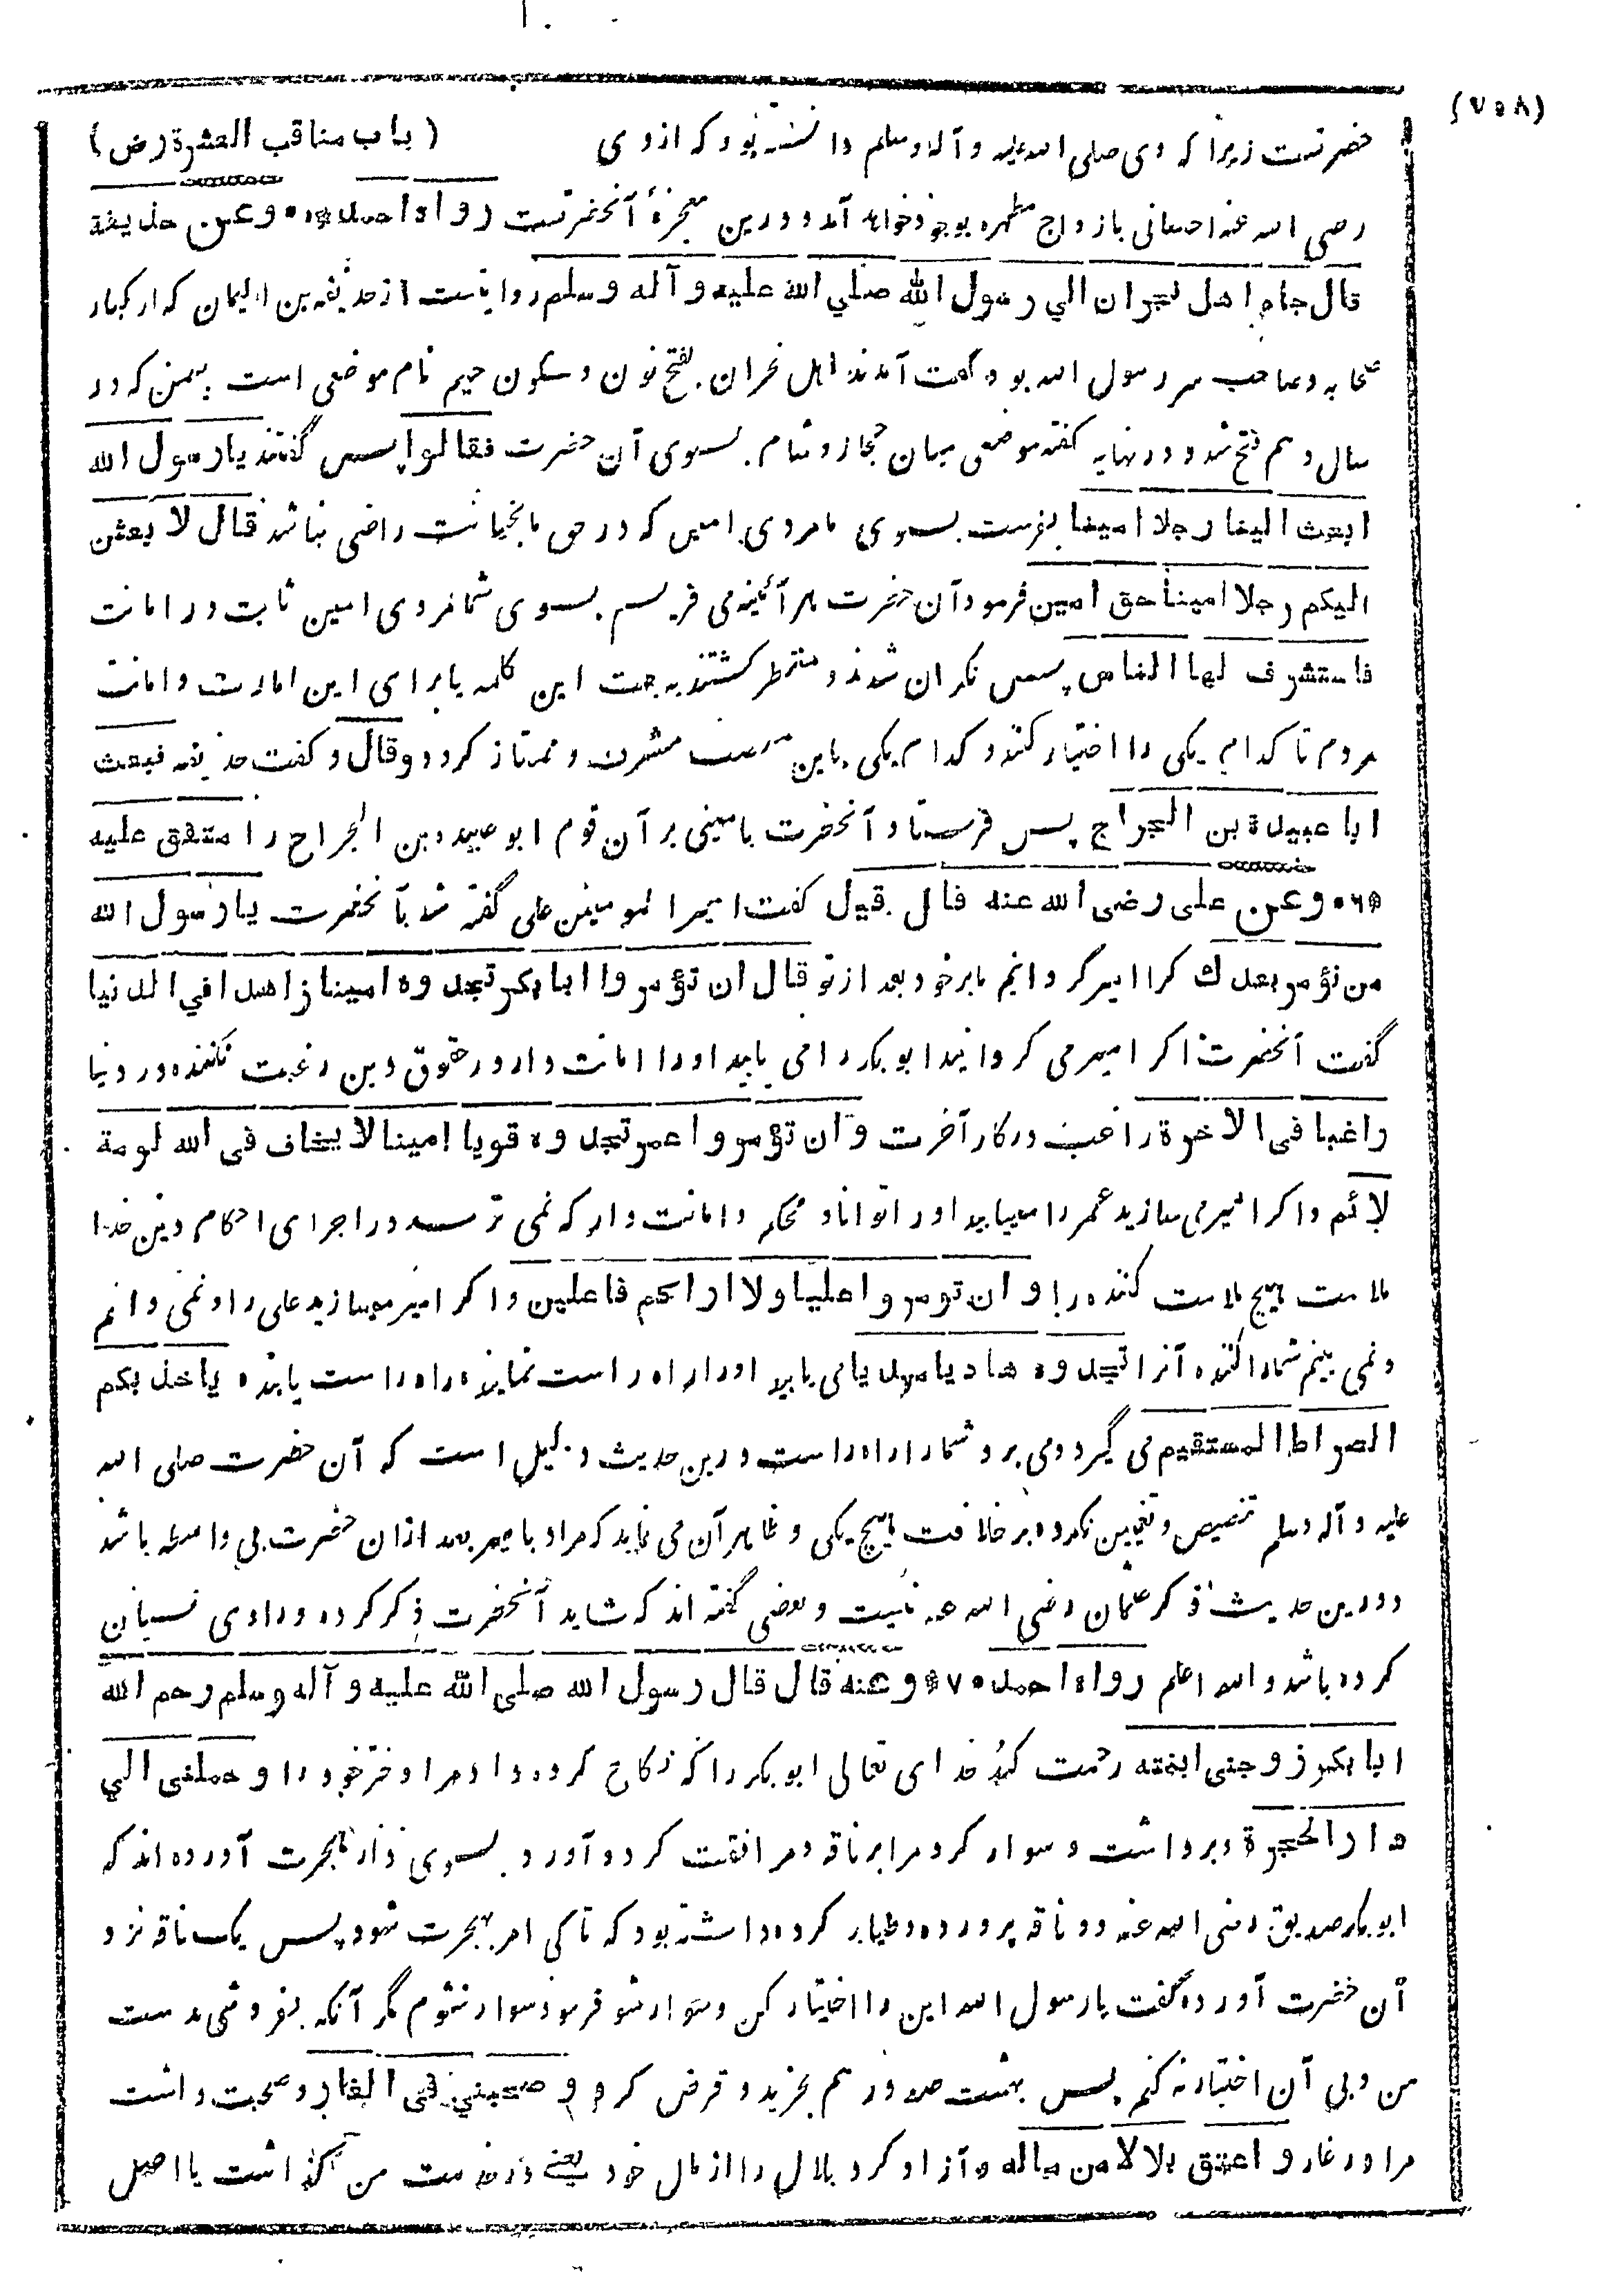 (۷۵۸)
(باب مناقب العشرة رض)
حضرتست زیرا که وی صلی الله علیه و آله وسلم دانسته بود که از وی
رضی الله عنه احسانی بازواج مطهره بوجود خواهد آمد و درین معجزهٔ آنحضرتست رواه احمد *۵* وعن حذیفة
قال جاء اهل نجران الي رسول الله صلي الله علیه و آله وسلم روایتست از حذیفه بن الیمان که از کبار
صحابه و صاحب سر رسول الله بود گفت آمدند اهل نجران بفتح نون و سکون جیم نام موضعی است بیمن که در
سال دهم فتح شد و در نهایه گفته موضعی میان حجاز و شام بسوی آن حضرت فقالوا پس گفتند یا رسول الله
ابعث الینا رجلا امینا بفرست بسوی ما مردی امین که در حق ما بخیانت راضی نباشد قال لابعثن
الیکم رجلا امینا حق امین فرمود آن حضرت هر آئینه می فرستم بسوی شما مردی امین ثابت در امانت
فاستشرف لها الناس پس نگران شدند و منتظر گشتند به جهت این کلمه یا برای این امارت و امانت
مردم تا کدام یکی را اختیار کند و کدام یکی باین مشرف و ممتاز کردد وقال و گفت حذیفه فبعث
ابا عبیدة بن الجراح پس فرستاد آنحضرت بامینی بر آن قوم ابو عبیده بن الجراح را متفق علیه
*۶* وعن علی رضی الله عنه قال قیل گفت امیر المومنین علی گفته شد بآنحضرت یا رسول الله
من نؤمر بعدك کرا امیر گردانیم ما بر خود بعد از تو قال ان تؤمروا ابا بکر تجدوه امینا زاهدا في الدنیا
گفت آنحضرت اگر امیر می گردانید ابو بکر را می یابید اورا امانت دار در حقوق دین رغبت نکننده در دنیا
راغبا فی الاخرة راغب در کار آخرت وان تؤمروا عمر تجدوه قویا امینا لا یخاف فی الله لومة
لائم و اگر امیر می سازید عمر را مییابید اورا توانا و محکم و امانت دار که نمی ترسد در اجرای احکام دین خدا
ملامت هیچ ملامت کننده را وان تومروا علیا ولا اراکم فاعلین و اگر امیر میسازید علی را و نمی دانم
و نمی بینم شما را کننده آنرا تجدوه هادیا مهدیا می یابید اورا راه راست نماینده راه راست یابنده یاخذ بکم
الصراط المستقیم می گیرد و می برد شما را راه راست و درین حدیث دلیل است که آن حضرت صلی الله
علیه و آله وسلم تنصیص و تعیین نکرده بر خلافت هیچ یکی و ظاهر آن می نماید که مراد بامیر بعد ازان حضرت بی واسطه باشد
و درین حدیث ذکر عثمان رضی الله عنه نیست و بعضی گفته اند که شاید آنحضرت ذکر کرده و راوی نسیان
کرده باشد والله اعلم رواه احمد *۷* وعنه قال قال رسول الله صلی الله علیه و آله وسلم رحم الله
ابا بکر زوجنی ابنته رحمت کند خدای تعالی ابو بکر را که نکاح کرده داد مرا دختر خود را وحملنی الي
دار الهجرة و برداشت و سوار کرد مرا بر ناقه و مرافقت کرد و آورد بسوی دار هجرت آورده اند که
ابو بکر صدیق رضی الله عنه دو ناقه پرورده و طیار کرده داشته بود که تا کی امر بهجرت شود پس یک ناقه نزد
آن حضرت آورده گفت یا رسول الله این را اختیار کن و سوار شو فرمود سوار نشوم مگر آنکه بفروشی بدست
من و بی آن اختیار نه کنم پس بهشت صد درهم بخرید و قرض کرد و صحبني في الغار و صحبت داشت
مرا در غار و اعتق بلالا من ماله و آزاد کرد بلال را از مال خود یعنے در خدمت من گذاشت یا اصل